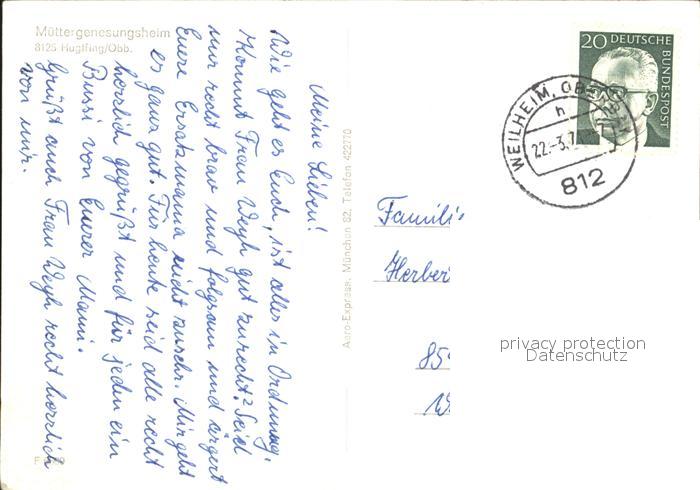 Müttergenesungsheim
8125 Huglfing/Obb.
Meine Lieben!
Wie geht es Euch, ist alles in Ordnung.
Kommt Frau Weyh gut zurecht? Seid
mir recht brav und folgsam und ärgert
Eure Ersatzmama nicht zusehr. Mir geht
es ganz gut. Für heute seid alle recht
herzlich gegrüßt und für jeden ein
Bussi von Eurer Mami.
Grüßt auch Frau Weyh recht herzlich
von mir.
Aero-Express, München 82, Telefon 422770
20 DEUTSCHE
BUNDESPOST
WEILHEIM, OBERBAY
h
22.-3.7
812
Famili
Herber
85
W
privacy protection
Datenschutz